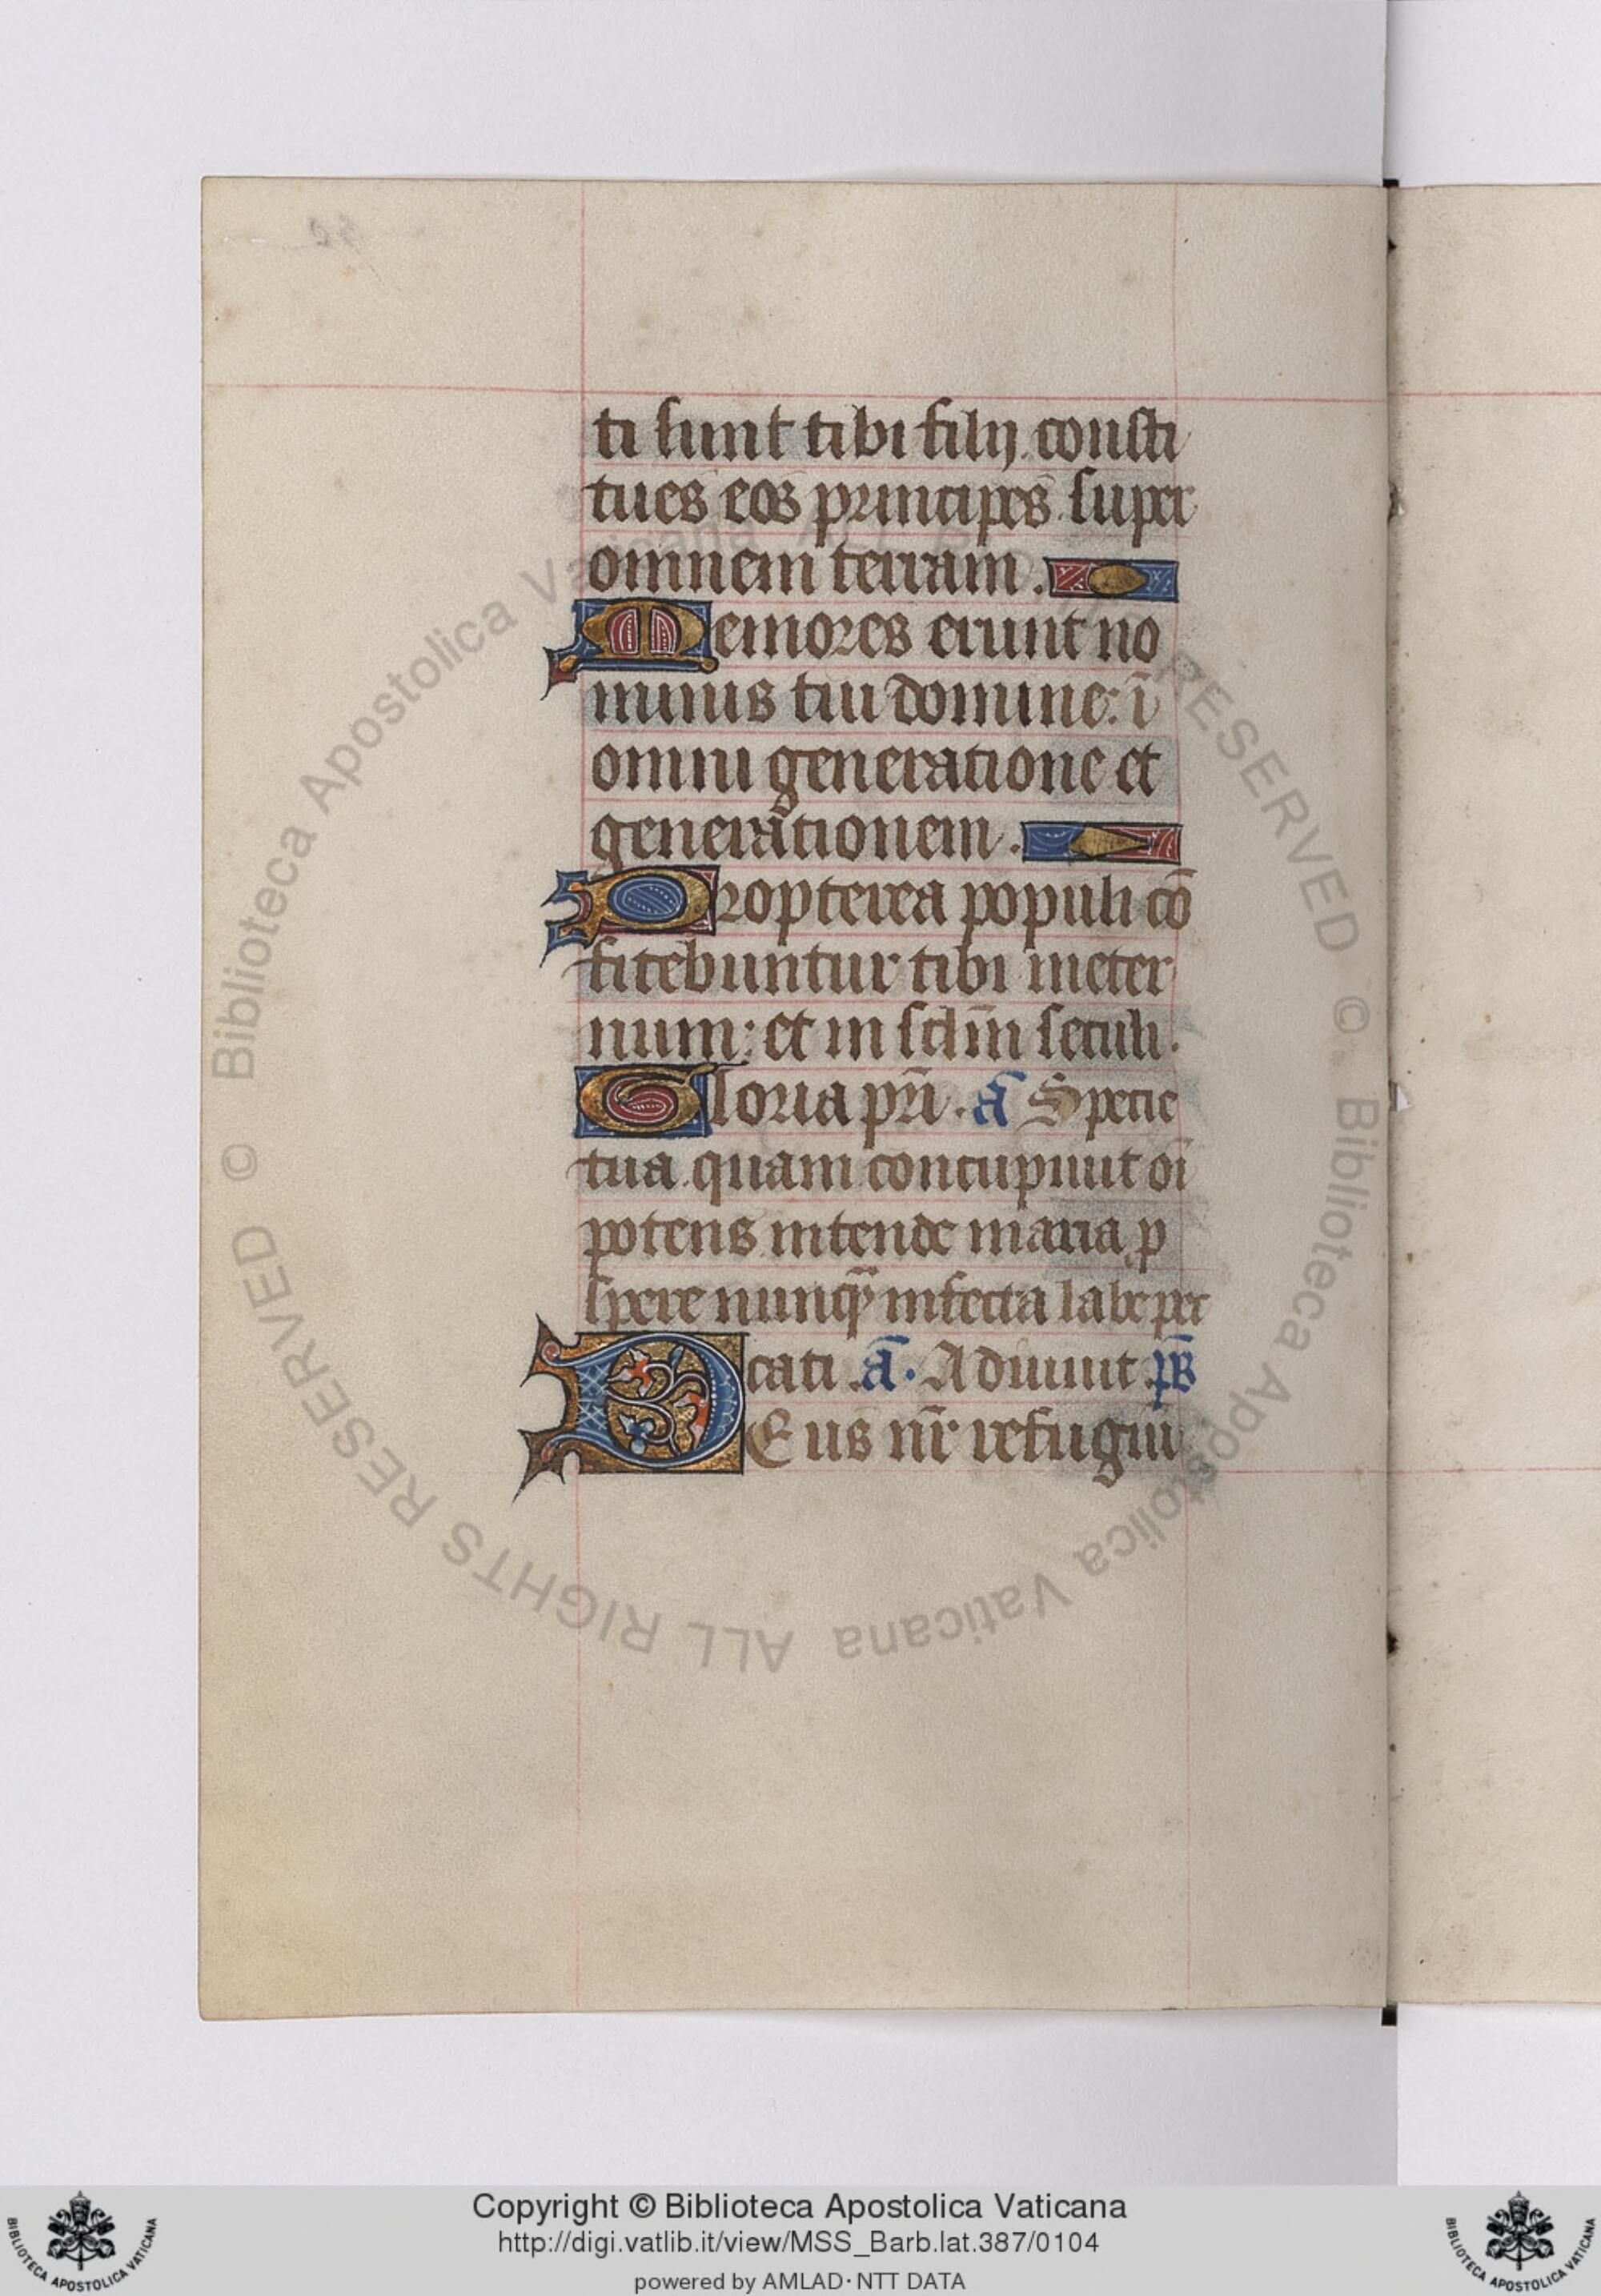 ti sunt tibi filij consti
tues eos principes super
omnem terram.
Memores erunt no
minis tui domine: ī
omni generatione et
generationem.
Propterea populi cō
fitebuntur tibi ineter
num: et in sclm̄ seculi.
Gloria pr̄i. ā Specie
tua quam concupiuit oī
potens intende maria p
spere nunq̄ infecta labe pec
cati. ā. Adiuuit. ps̄
DEus nr̄ refugiū
© Biblioteca Apostolica Vaticana ALL RIGHTS RESERVED © Biblioteca Apostolica Vaticana ALL RIGHTS RESERVED
Copyright © Biblioteca Apostolica Vaticana
http://digi.vatlib.it/view/MSS_Barb.lat.387/0104
powered by AMLAD·NTT DATA
BIBLIOTECA APOSTOLICA VATICANA
BIBLIOTECA APOSTOLICA VATICANA